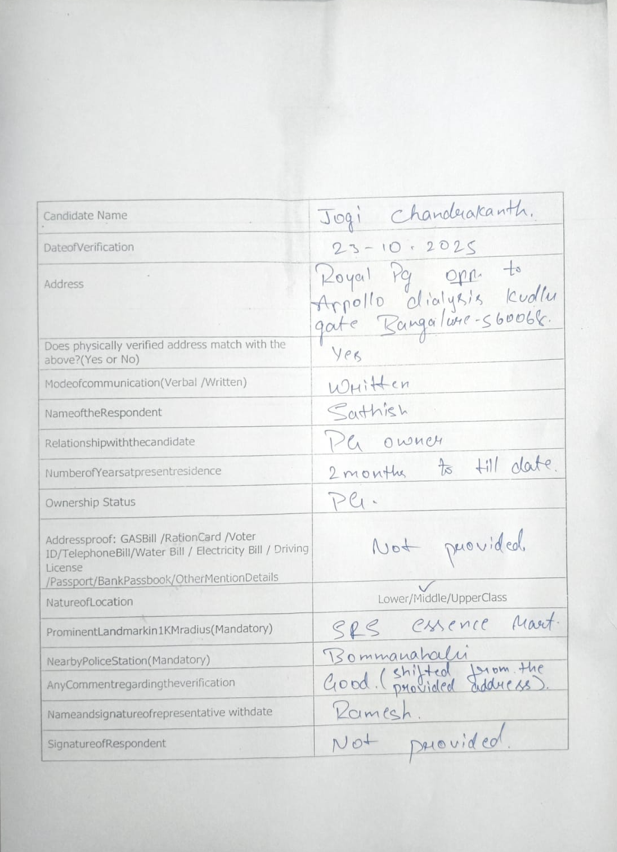 Candidate Name
Jogi Chandrakanth.
DateofVerification
23-10.2025
Address
Royal Pg opp. to
Arpollo dialysis Kudlu
gate Bangalure-560068.
Does physically verified address match with the
above?(Yes or No)
Yes
Modeofcommunication(Verbal /Written)
Written
NameoftheRespondent
Sathish
Relationshipwiththecandidate
PG owner
NumberofYearsatpresentresidence
2 months to till date.
Ownership Status
PG.
Addressproof: GASBill /RationCard /Voter
ID/TelephoneBill/Water Bill / Electricity Bill / Driving
License
/Passport/BankPassbook/OtherMentionDetails
Not provided.
NatureofLocation
Lower/Middle/UpperClass
ProminentLandmarkin1KMradius(Mandatory)
SRS essence Mart.
NearbyPoliceStation(Mandatory)
Bommanahali
AnyCommentregardingtheverification
Good. (shifted from the
provided address).
Nameandsignatureofrepresentative withdate
Ramesh.
SignatureofRespondent
Not provided.